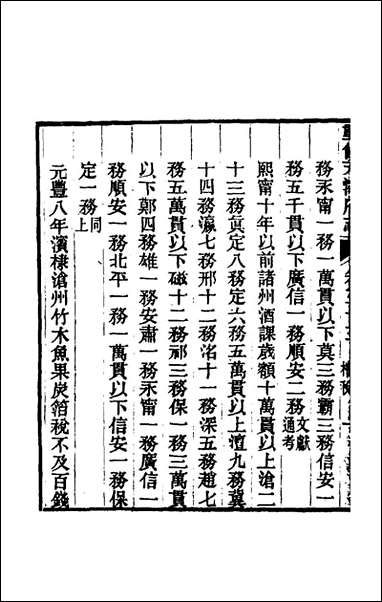 務永甯一務一萬貫以下莫三務霸三務信安一
務五千貫以下廣信一務順安二務文獻通考
熙甯十年以前諸州酒課歲額十萬貫以上滄二
十三務眞定八務定六務五萬貫以上澶九務冀
十四務瀛七務邢十二務洺十一務深五務趙七
務五萬貫以下磁十二務祁三務保一務三萬貫
以下鄭四務雄一務安肅一務永甯一務廣信一
務順安一務北平一務一萬貫以下信安一務保
定一務同上
元豐八年濱棣滄州竹木魚果炭箔稅不及百錢